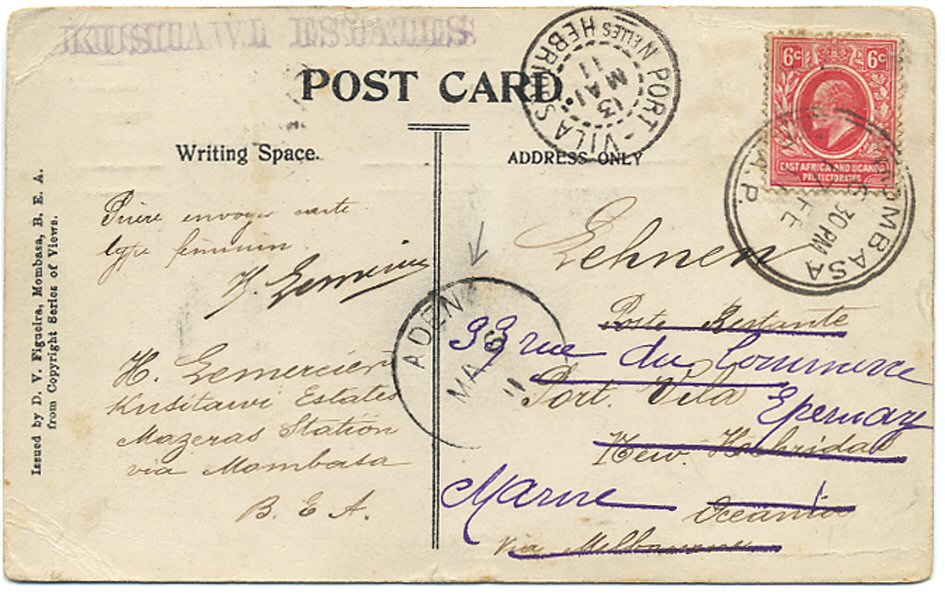 KUSITAWI ESTATES
POST CARD
Writing Space.
ADDRESS ONLY
Issued by D. V. Figueira, Mombasa, B. E. A.
from Copyright Series of Views.
PORT-VILA
NELLES HEBRIDES
13
MAI
11
6c 6c
EAST AFRICA AND UGANDA
PROTECTORATES
MOMBASA
30 PM
FE
Prière envoyer carte
type féminin.
H. Lemercier
H. Lemercier
Kusitawi Estates
Mazeras Station
via Mombasa
B. E. A.
ADEN
MA
11
Lehnen
Poste Restante
33 rue du Commerce
Port. Vila
Epernay
New. Hebrides
Marne
Oceania
via Melbourne